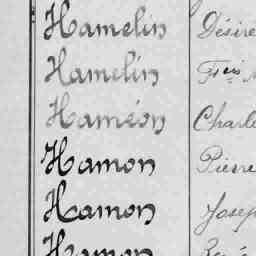 Hamelin Désiré
Hamelin Fçois
Haméon Charle
Hamon Pierre
Hamon Josep
Hamon René